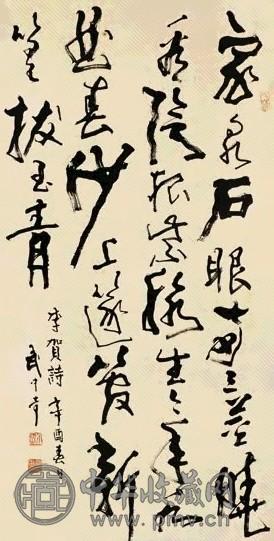 家泉石眼兩三莖曉
看陰根紫脈生今年水
曲春沙上篴管新
篁拔玉青
李賀詩 辛酉春日
武中奇
中华收藏网
www.pmv.cn